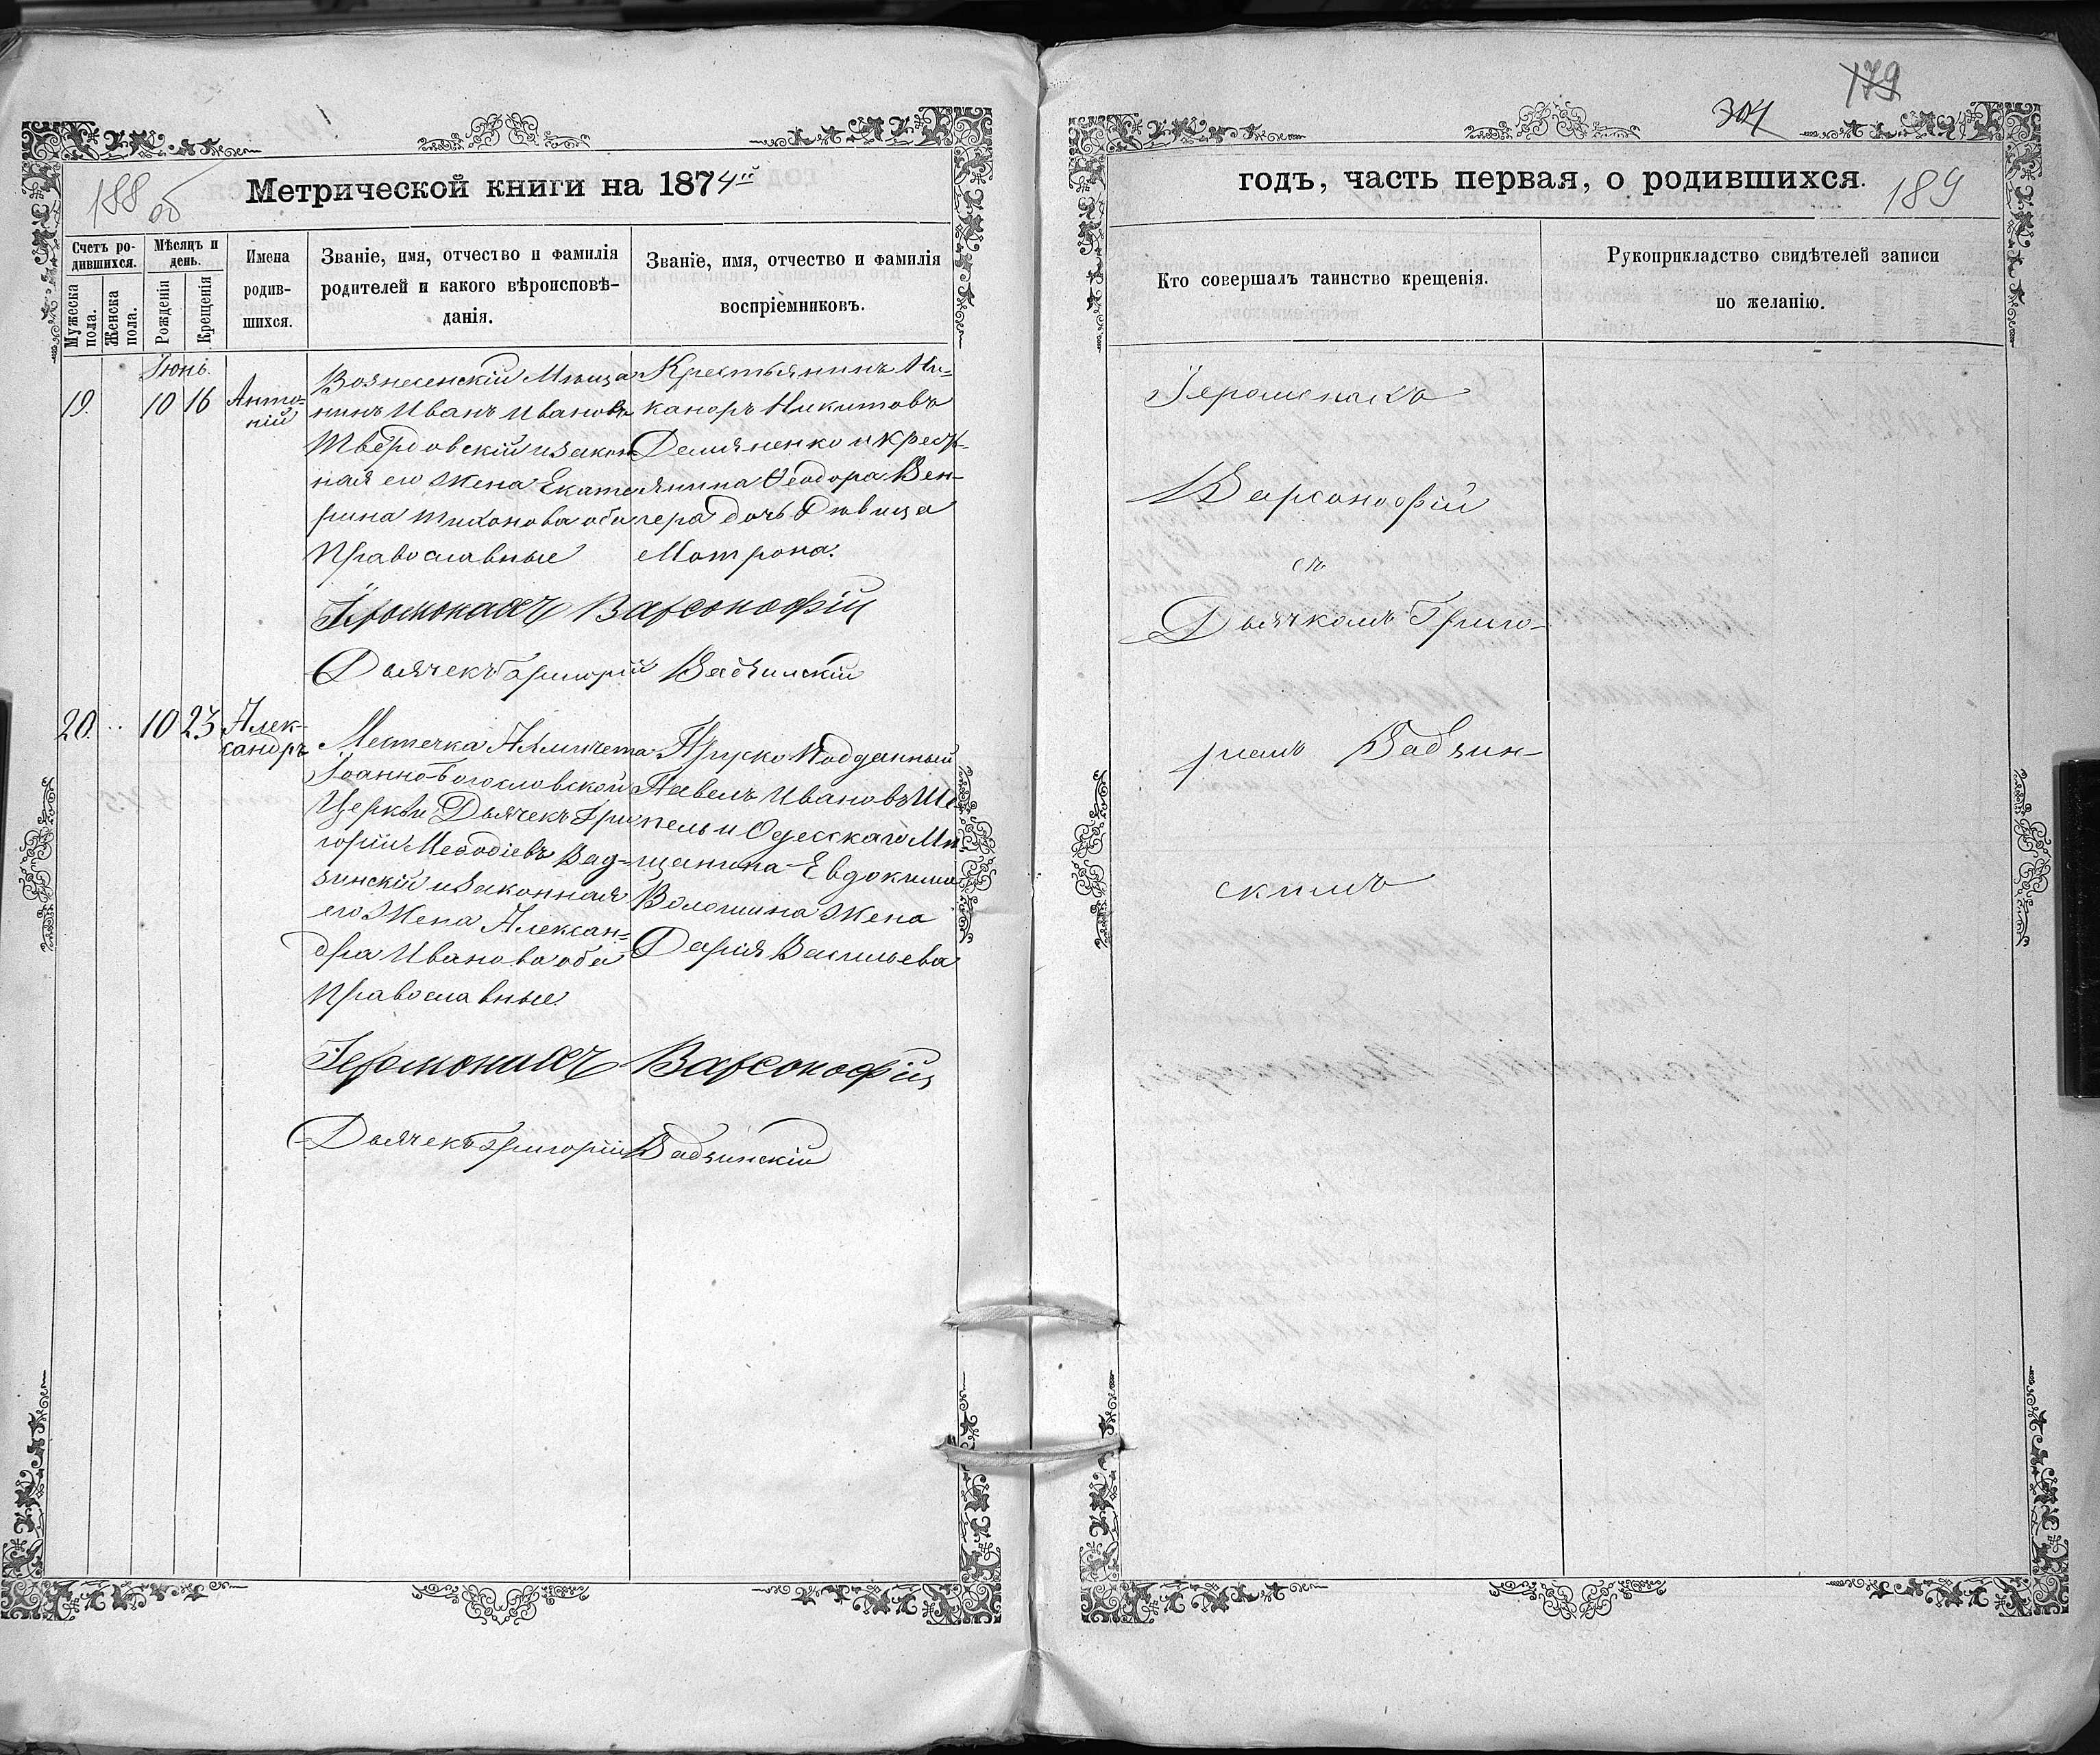 188 об
Метрической книги на 1874й
Счетъ ро-
дившихся.
Мужеска пола.
Женска пола.
Мѣсяцъ и
день.
Рожденія
Крещенія
Имена
родив-
шихся.
Званіе, имя, отчество и фамилія
родителей и какого вѣроисповѣ-
данія.
Званіе, имя, отчество и фамилія
воспріемниковъ.
Іюнь.
19. 10 16
Анто-
ній
Вознесенскій Мѣща
нинъ Иванъ Ивановъ
Твердовскій и закон
ная его жена Екате
рина Тихонова оба
Православные
Крестьянинъ Ни-
каноръ Никитовъ
Демяненко и крест-
янина Ѳеодора Вен-
гера дочь Дѣвица
Мотрона.
Іеромонахъ Варсонофій
Дьячекъ Григорій Вадзинскій
20. 10 23
Алек-
сандръ
Местечка Ахмечета
Іоанно-Богословской
Церкви Дьячекъ Гри
горій Меѳодіевъ Вад-
зинскій и законная
его жена Алексан-
дра Иванова оба
Православные
Пруско Подданный
Павелъ Ивановъ Ше-
пель и Одесскаго Мѣ
щанина Евдокима
Волошина жена
Дарія Васильева
Іеромонахъ Варсонофій
Дьячекъ Григорій Вадзинскій
179
304
годъ, часть первая, о родившихся.
189
Кто совершалъ таинство крещенія.
Рукоприкладство свидѣтелей записи
по желанію.
Іеромонахъ
Варсонофій
съ
Дьячкомъ Григо-
ріемъ Вадзин-
скимъ